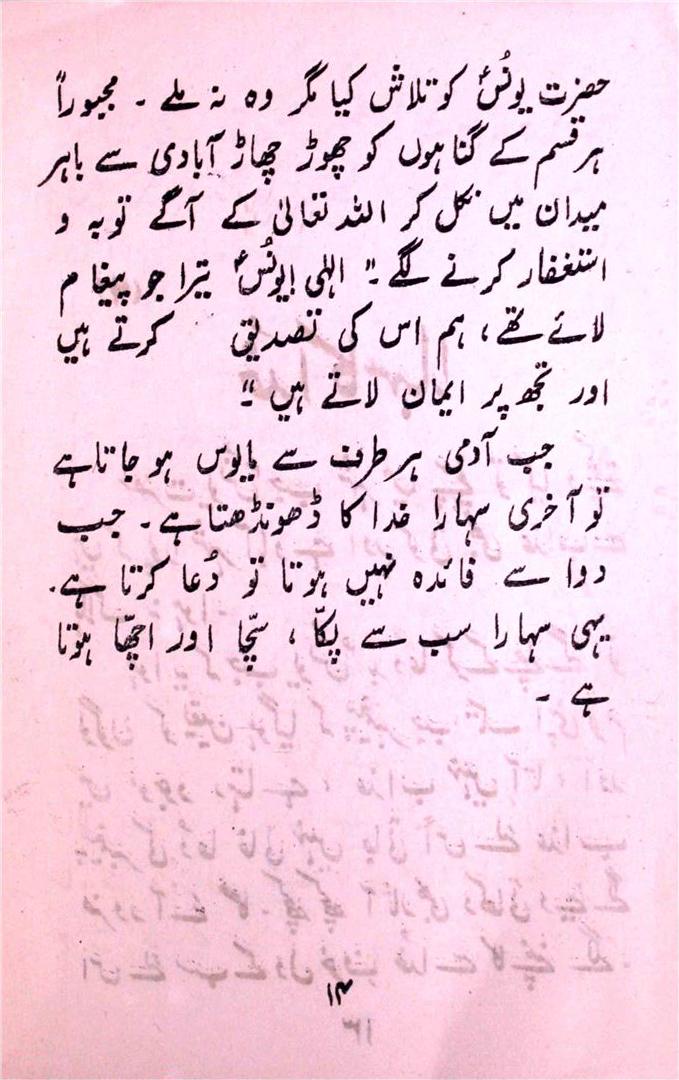 حضرت یونسؑ کو تلاش کیا مگر وہ نہ ملے ۔ مجبوراً
ہر قسم کے گناہوں کو چھوڑ چھاڑ آبادی سے باہر
میدان میں نکل کر اللہ تعالیٰ کے آگے توبہ و
استغفار کرنے لگے ۔" الٰہی! یونُسؑ تیرا جو پیغام
لائے تھے ، ہم اس کی تصدیق کرتے ہیں
اور تجھ پر ایمان لاتے ہیں ۔"
جب آدمی ہر طرف سے مایوس ہو جاتا ہے
تو آخری سہارا خدا کا ڈھونڈھتا ہے ۔ جب
دوا سے فائدہ نہیں ہوتا تو دُعا کرتا ہے۔
یہی سہارا سب سے پکّا ، سچّا اور اچھّا ہوتا
ہے ۔
۱۴